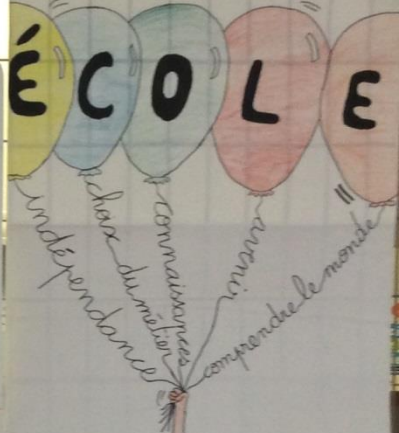 ÉCOLE
indépendance
choix du métier
connaissances
comprendre le monde